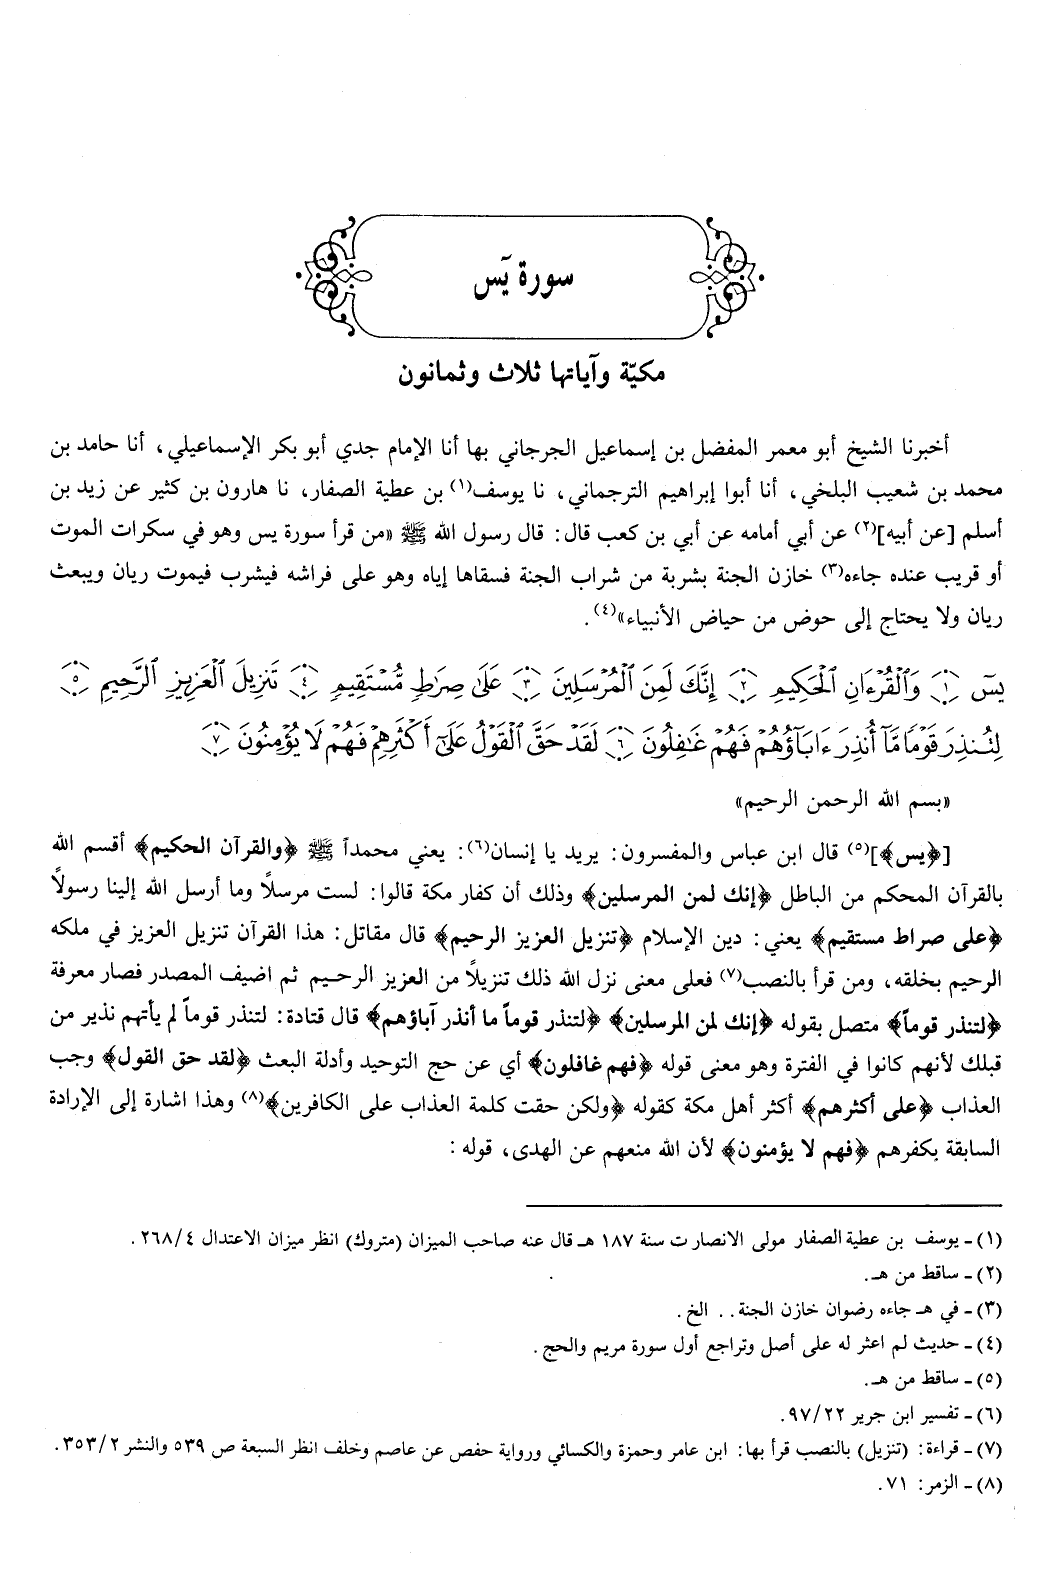 سورة يَس
مكيّة وآياتها ثلاث وثمانون
أخبرنا الشيخ أبو معمر المفضل بن إسماعيل الجرجاني بها أنا الإمام جدي أبو بكر الإسماعيلي، أنا حامد بن
محمد بن شعيب البلخي، أنا أبوا إبراهيم الترجماني، نا يوسف(١) بن عطية الصفار، نا هارون بن كثير عن زيد بن
أسلم [عن أبيه](٢) عن أبي أمامه عن أبي بن كعب قال: قال رسول الله ﷺ «من قرأ سورة يس وهو في سكرات الموت
أو قريب عنده جاءه(٣) خازن الجنة بشربة من شراب الجنة فسقاها إياه وهو على فراشه فيشرب فيموت ريان ويبعث
ريان ولا يحتاج إلى حوض من حياض الأنبياء»(٤).
يسٓ ۝١ وَٱلْقُرْءَانِ ٱلْحَكِيمِ ۝٢ إِنَّكَ لَمِنَ ٱلْمُرْسَلِينَ ۝٣ عَلَىٰ صِرَٰطٍ مُّسْتَقِيمٍ ۝٤ تَنزِيلَ ٱلْعَزِيزِ ٱلرَّحِيمِ ۝٥
لِتُنذِرَ قَوْمًا مَّآ أُنذِرَ ءَابَآؤُهُمْ فَهُمْ غَٰفِلُونَ ۝٦ لَقَدْ حَقَّ ٱلْقَوْلُ عَلَىٰٓ أَكْثَرِهِمْ فَهُمْ لَا يُؤْمِنُونَ ۝٧
«بسم الله الرحمن الرحيم»
[﴿يس﴾](٥) قال ابن عباس والمفسرون: يريد يا إنسان(٦): يعني محمداً ﷺ ﴿والقرآن الحكيم﴾ أقسم الله
بالقرآن المحكم من الباطل ﴿إنك لمن المرسلين﴾ وذلك أن كفار مكة قالوا: لست مرسلاً وما أرسل الله إلينا رسولاً
﴿على صراط مستقيم﴾ يعني: دين الإسلام ﴿تنزيل العزيز الرحيم﴾ قال مقاتل: هذا القرآن تنزيل العزيز في ملكه
الرحيم بخلقه، ومن قرأ بالنصب(٧) فعلى معنى نزل الله ذلك تنزيلاً من العزيز الرحيم ثم اضيف المصدر فصار معرفة
﴿لتنذر قوماً﴾ متصل بقوله ﴿إنك لمن المرسلين﴾ ﴿لتنذر قوماً ما أنذر آباؤهم﴾ قال قتادة: لتنذر قوماً لم يأتهم نذير من
قبلك لأنهم كانوا في الفترة وهو معنى قوله ﴿فهم غافلون﴾ أي عن حج التوحيد وأدلة البعث ﴿لقد حق القول﴾ وجب
العذاب ﴿على أكثرهم﴾ أكثر أهل مكة كقوله ﴿ولكن حقت كلمة العذاب على الكافرين﴾(٨) وهذا اشارة إلى الإرادة
السابقة بكفرهم ﴿فهم لا يؤمنون﴾ لأن الله منعهم عن الهدى، قوله:
(١) - يوسف بن عطية الصفار مولى الانصار ت سنة ١٨٧ هـ قال عنه صاحب الميزان (متروك) انظر ميزان الاعتدال ٢٦٨/٤.
(٢) - ساقط من هـ.
(٣) - في هـ جاءه رضوان خازن الجنة.. الخ.
(٤) - حديث لم اعثر له على أصل وتراجع أول سورة مريم والحج.
(٥) - ساقط من هـ.
(٦) - تفسير ابن جرير ٩٧/٢٢.
(٧) - قراءة: (تنزيل) بالنصب قرأ بها: ابن عامر وحمزة والكسائي ورواية حفص عن عاصم وخلف انظر السبعة ص ٥٣٩ والنشر ٣٥٣/٢.
(٨) - الزمر: ٧١.